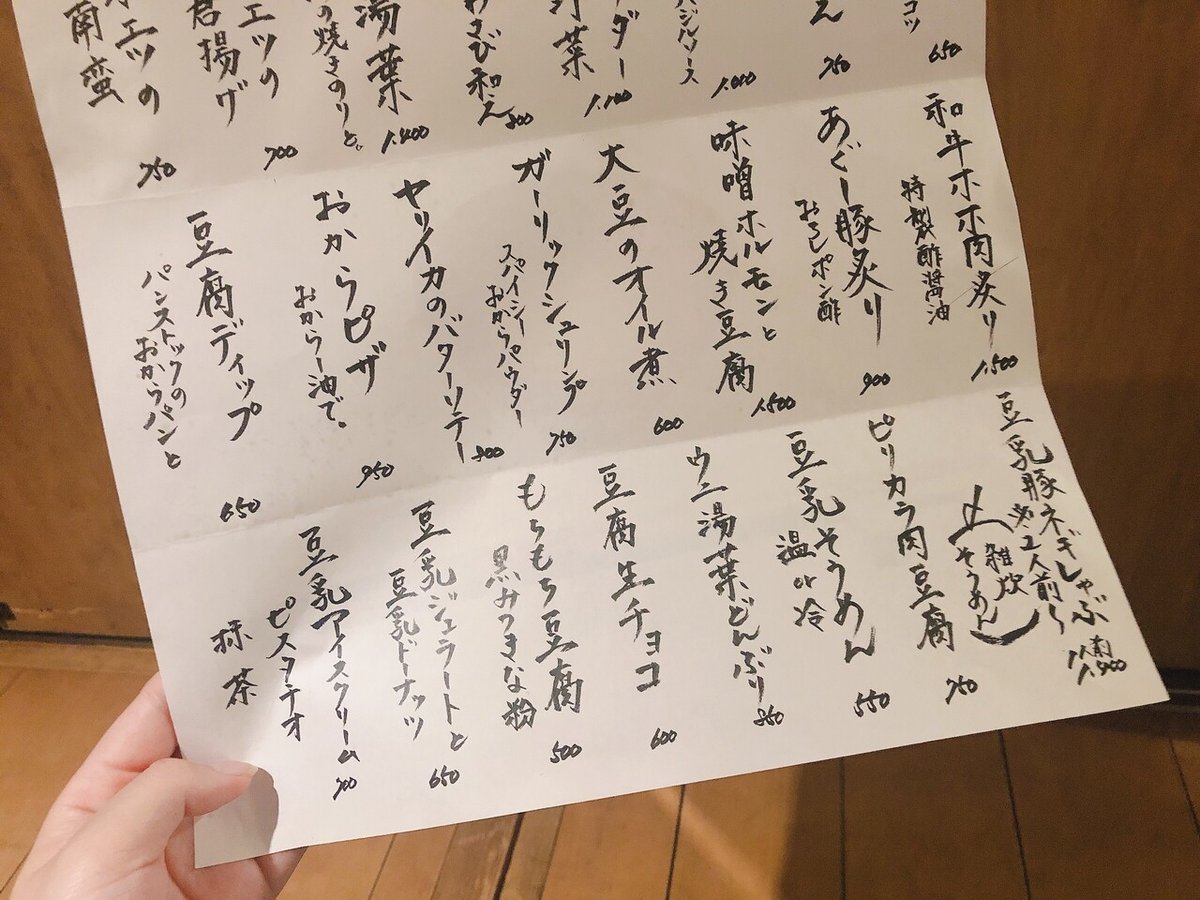 コツ
650
え
750
バジルソース
1.000
ダー
汁葉
1.100
わさび和え
800
湯葉
の焼きのりと。
1.400
エツの
君揚げ
700
エツの
南蛮
750
和牛ホホ肉炙り
特製酢醤油
1.500
あぐー豚炙り
おろしポン酢
900
味噌ホルモンと
焼き豆腐
1.500
大豆のオイル煮
600
ガーリックシュリンプ
スパイシー
おからパウダー
750
ヤリイカのバターソテー
800
おからピザ
おからラー油で。
950
豆腐ディップ
パンストックの
おからパンと
650
豆乳豚ネギしゃぶ
※2人前〜
〆(雑炊
そうめん)
1人前
1.900
ピリカラ肉豆腐
750
豆乳そうめん
温or冷
550
ウニ湯葉どんぶり
850
豆腐生チョコ
600
もちもち豆腐
黒みつきな粉
500
豆乳ジェラートと
豆乳ドーナッツ
650
豆乳アイスクリーム
ピスタチオ
抹茶
700